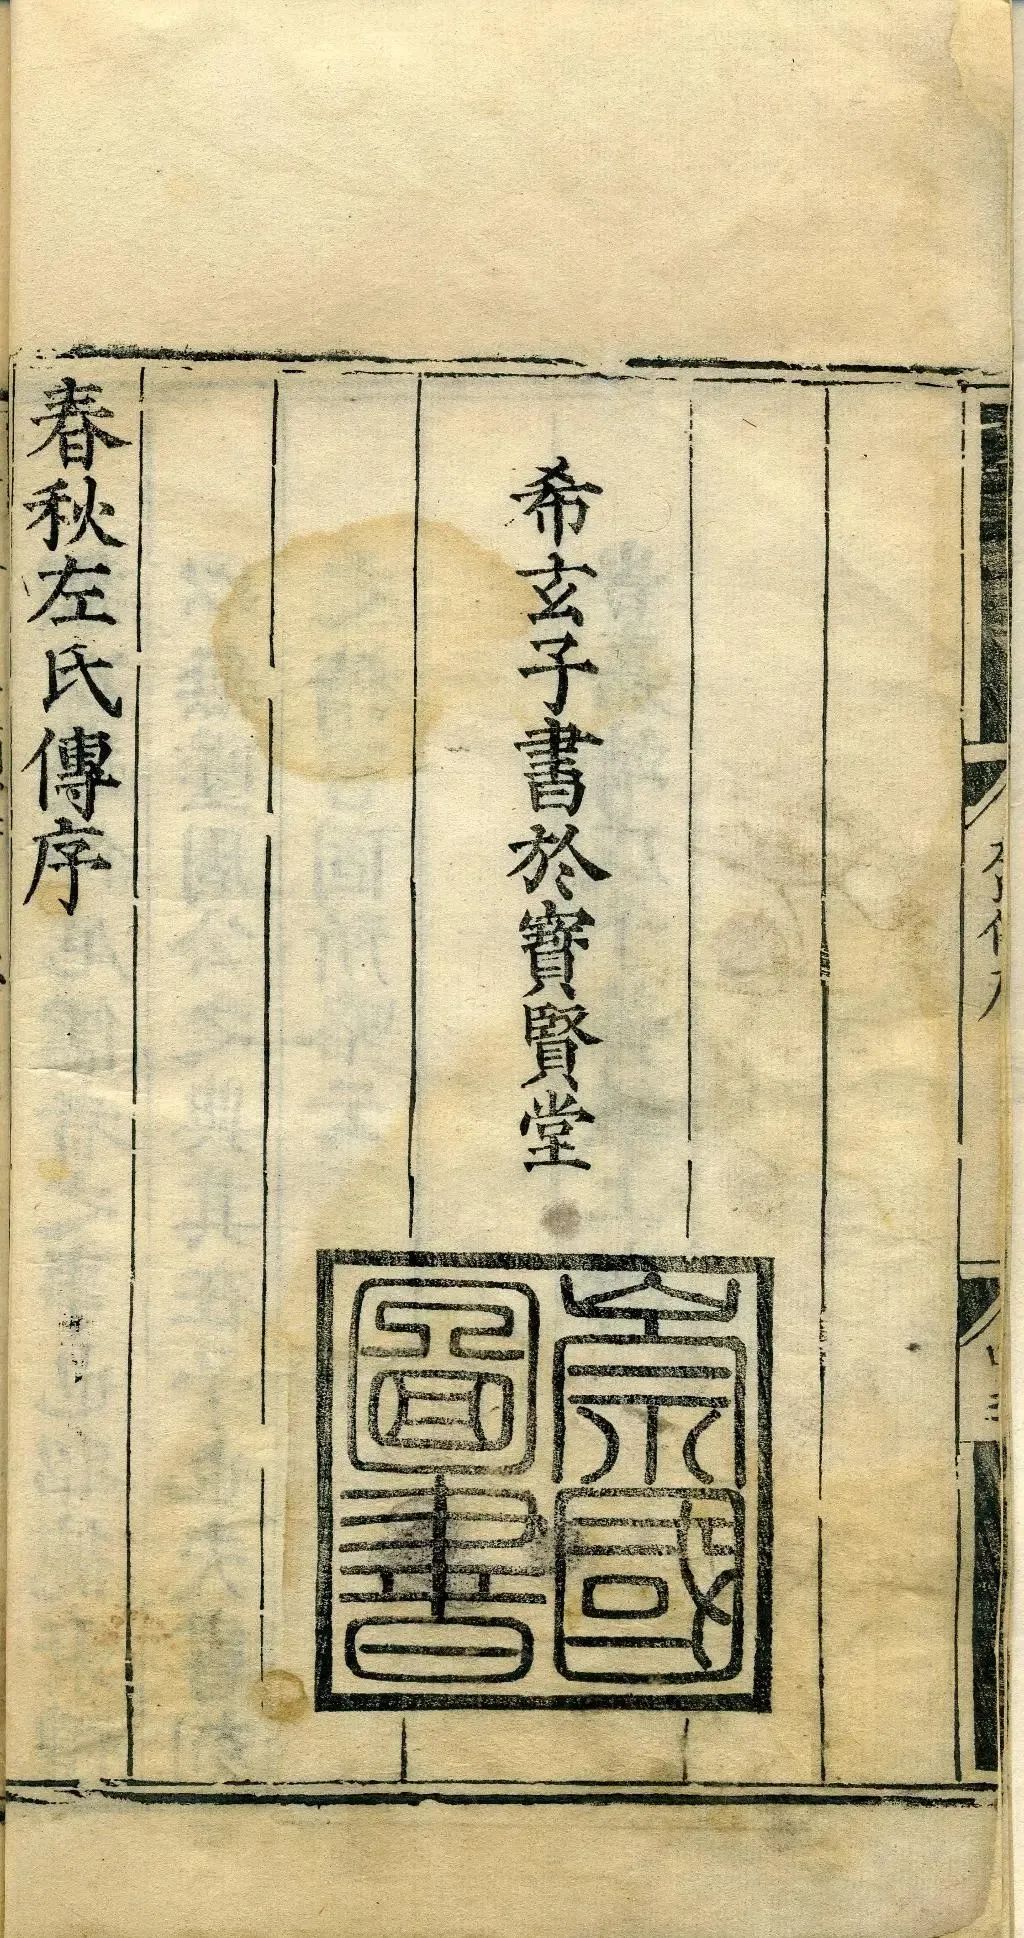 希玄子書於寶賢堂
崇國
圖書
春秋左氏傳序